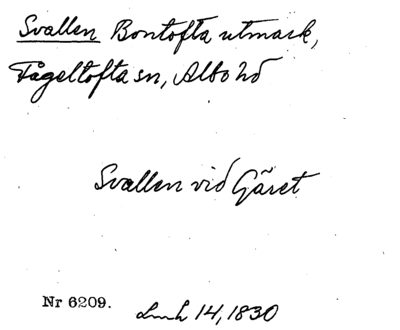 Svallen Bontofta utmark,
Fågeltofta sn, Albo hd
Svallen vid Gäret
Nr 6209.
Lmh 14, 1830